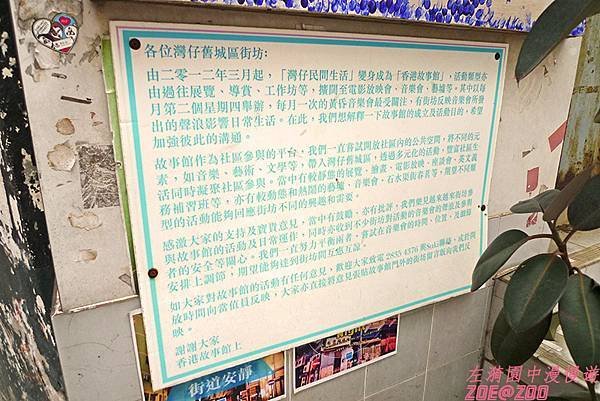 各位灣仔舊城區街坊:
由二零一二年三月起,「灣仔民間生活」變身成為「香港故事館」,活動類型亦
由過往展覽、導賞、工作坊等,擴闊至電影放映會、音樂會、墟等。其中以每
月第二個星期四舉辦,每月一次的黃昏音樂會最受關注,有街坊反映音樂會所發
出的聲浪影響日常生活。在此,我們想解釋一下故事館的成立及活動目的,希望
加強彼此的溝通。
故事館作為社區參與的平台,我們一直嘗試開放社區內的公共空間,將不同的元
素,如音樂、藝術、文學等,帶入灣仔舊城區,透過多元化的活動,豐富社區生
活同時凝聚社區參與。當中有較靜態的展覽、繪畫、電影放映、座談會、英文義
務補習班等,亦有較動態和熱鬧的墟、音樂會、石水渠街春茗等,期望不同類
型的活動能夠回應街坊不同的興趣和需要。
感激大家的支持及寶貴意見,當中有鼓勵、亦有批評,我們樂見越來越街坊參
與故事館的活動及日常運作,同時亦收到不少街坊對活動的音樂會的聲浪及參與
者的安全等關心。我們一直努力平衡兩者,嘗試在音樂會的時間、位置、及聲
安排上調節,期望能夠達到街坊間互惠互諒。
如大家對故事館的活動有任何意見,歡迎大家致電 2835 4376 與Suki聯絡,或於開
放時間向當值員反映,大家亦直接將意見張貼故事館門外的街坊留言版向我們反
映。
謝謝大家
香港故事館上
街道安靜
左漪園中漫優遊
ZOE@ZOO